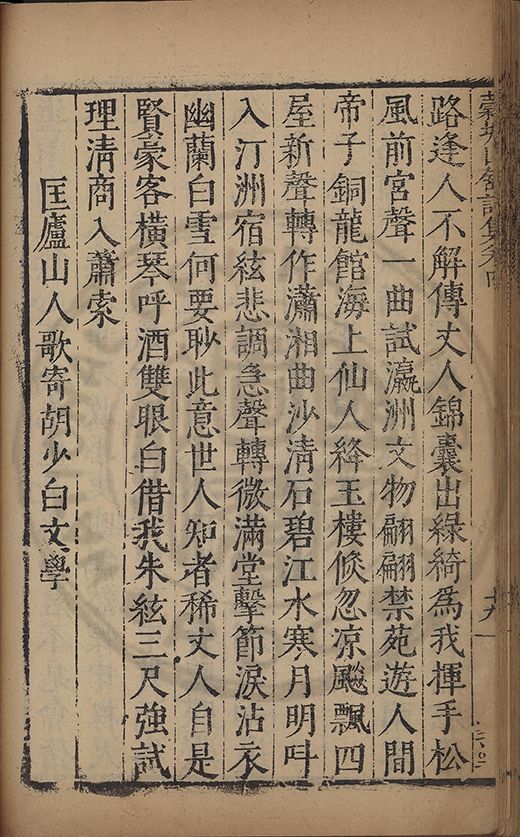 路逢人不解傳丈人錦囊出綠綺為我揮手松
風前宮聲一曲試瀛洲文物翩翩禁苑遊人間
帝子銅龍館海上仙人絳玉樓倏忽涼飈飄四
屋新聲轉作瀟湘曲沙清石碧江水寒月明叫
入汀洲宿絃悲調急聲轉微滿堂擊節淚沾衣
幽蘭白雪何要眇此意世人知者稀丈人自是
賢豪客橫琴呼酒雙眼白借我朱絃三尺強試
理清商入蕭索
匡廬山人歌寄胡少白文學